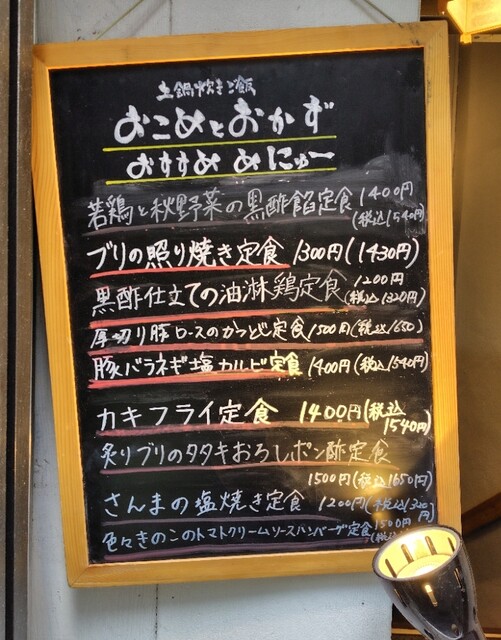 土鍋炊きご飯
おこめとおかず
おすすめ めにゅー
若鶏と秋野菜の黒酢餡定食 1400円
(税込1540円)
ブリの照り焼き定食 1300円(1430円)
黒酢仕立ての油淋鶏定食 1200円
(税込1320円)
厚切り豚ロースのかつとじ定食 1500円(税込1650)
豚バラネギ塩カルビ定食 1400円(税込1540円)
カキフライ定食 1400円(税込
1540円)
炙りブリのタタキおろしポン酢定食
1500円(税込1650円)
さんまの塩焼き定食 1200円(税込1320
円)
色々きのこのトマトクリームソースハンバーグ定食 1500円
(税込